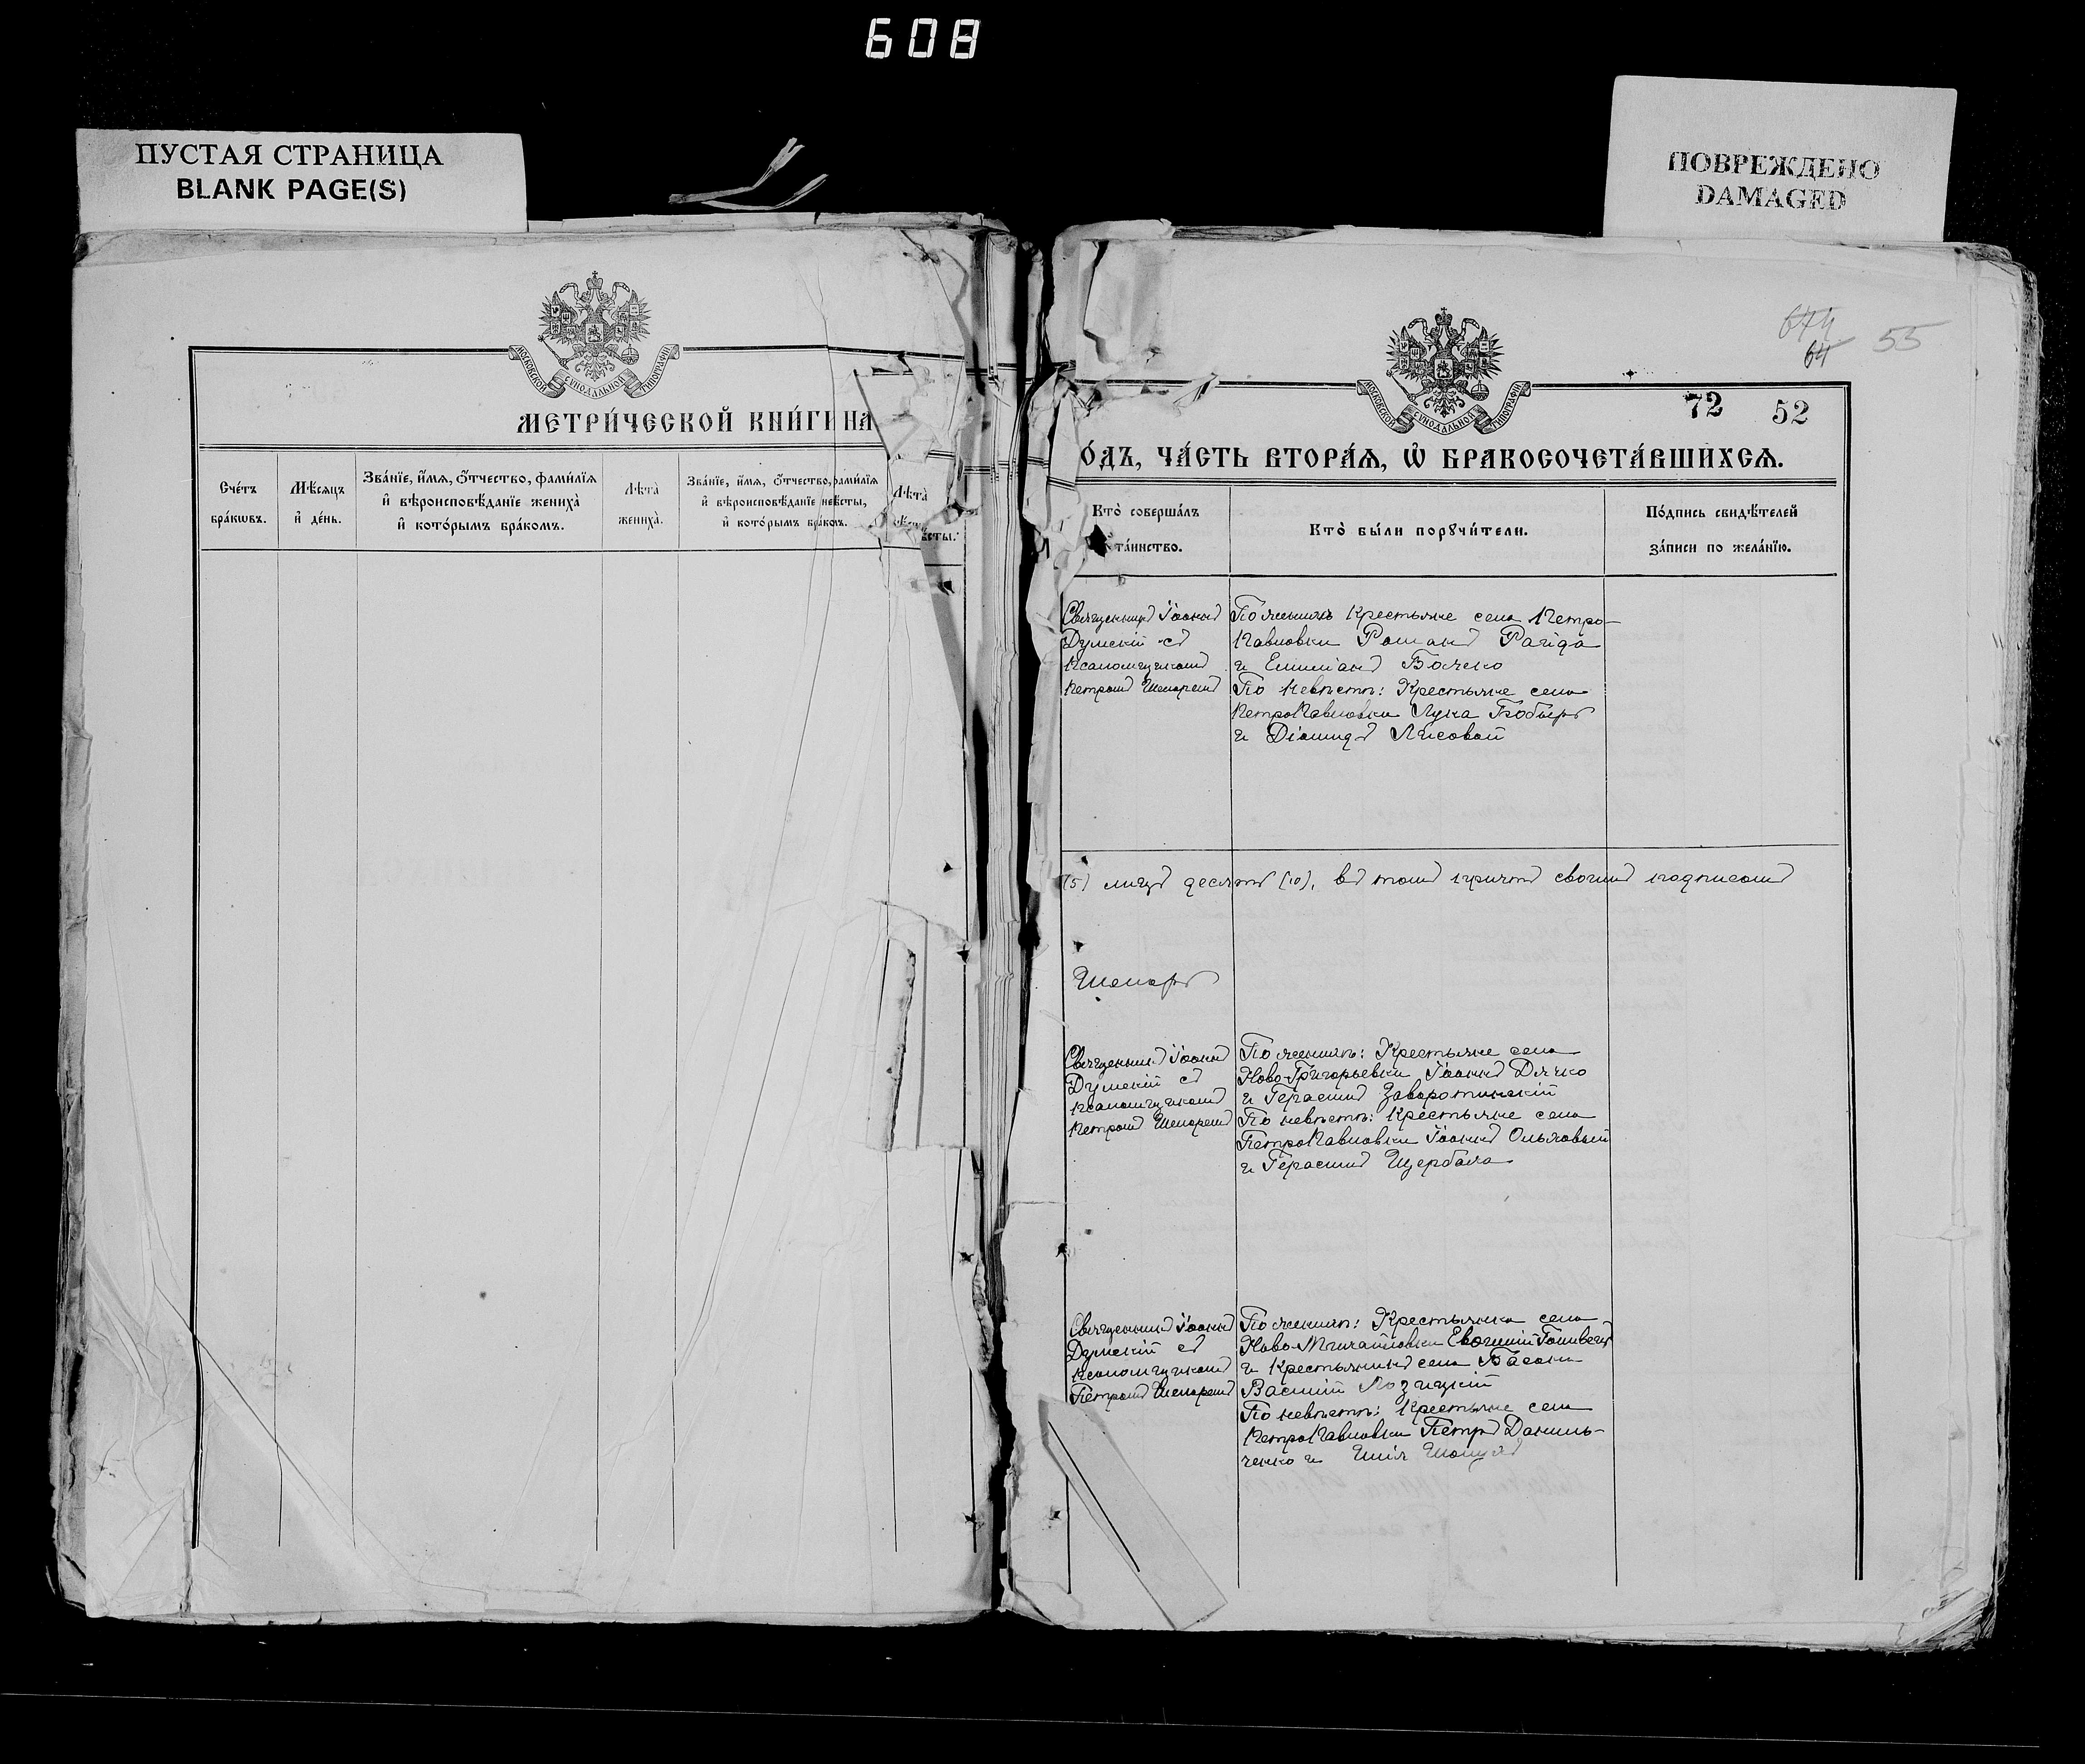 608
ПУСТАЯ СТРАНИЦА
BLANK PAGE(S)
ПОВРЕЖДЕНО
DAMAGED
МОСКОВСКОЙ СѴНОДАЛЬНОЙ ТИПОГРАФІИ
МЕТРИ́ЧЕСКОЙ КНИ́ГИ НА
Сче́тъ бра́кωвъ.
Мѣ́сѧцъ и҆ де́нь.
Зва́нїе, и҆́мѧ, ѻ҆́тчество, фами́лїѧ
и҆ вѣроисповѣ́данїе жениха̀
и҆ кото́рымъ бра́комъ.
Лѣта̀ жениха̀.
Зва́нїе, и҆́мѧ, ѻ҆́тчество, фами́лїѧ
и҆ вѣроисповѣ́данїе невѣ́сты,
и҆ кото́рымъ бра́комъ.
Лѣта̀
ѣсты.
674
64
55
МОСКОВСКОЙ СѴНОДАЛЬНОЙ ТИПОГРАФІИ
72 52
О́ДЪ, ЧА́СТЬ ВТОРА́Ѧ, Ѡ҆ БРАКОСОЧЕТА́ВШИХСѦ.
Кто̀ соверша́лъ
та́инство.
Кто̀ бы́ли порꙋчи́тели.
По́дпись свидѣ́телей
за́писи по жела́нїю.
Священникъ Іоаннъ
Думскій съ
псаломщикомъ
Петромъ Шепаремъ
По женихѣ Крестьяне села Петро-
Павловки Романъ Рагида
и Емиліанъ Бочко
По невѣстѣ: Крестьяне села
ПетроПавловки Лука Бобырь
и Діомидъ Лисовой
(5) лицъ десять (10), въ томъ причтъ своимъ подписомъ
Шепарь
Священникъ Іоаннъ
Думскій съ
псаломщикомъ
Петромъ Шепаремъ
По женихѣ: Крестьяне села
Ново-Григорьевки Іоаннъ Дячко
и Герасимъ Заворотинскій
По невѣстѣ: Крестьяне села
ПетроПавловки Іоаннъ Ольховый
и Герасимъ Щербака
Священникъ Іоаннъ
Думскій съ
псаломщикомъ
Петромъ Шепаремъ
По женихѣ: Крестьянинъ села
Ново-Михайловки Евфимій
и крестьянинъ села Басани
Василій Лозицкій
По невѣстѣ: Крестьяне села
ПетроПавловки Петръ Даниль-
ченко и Илія